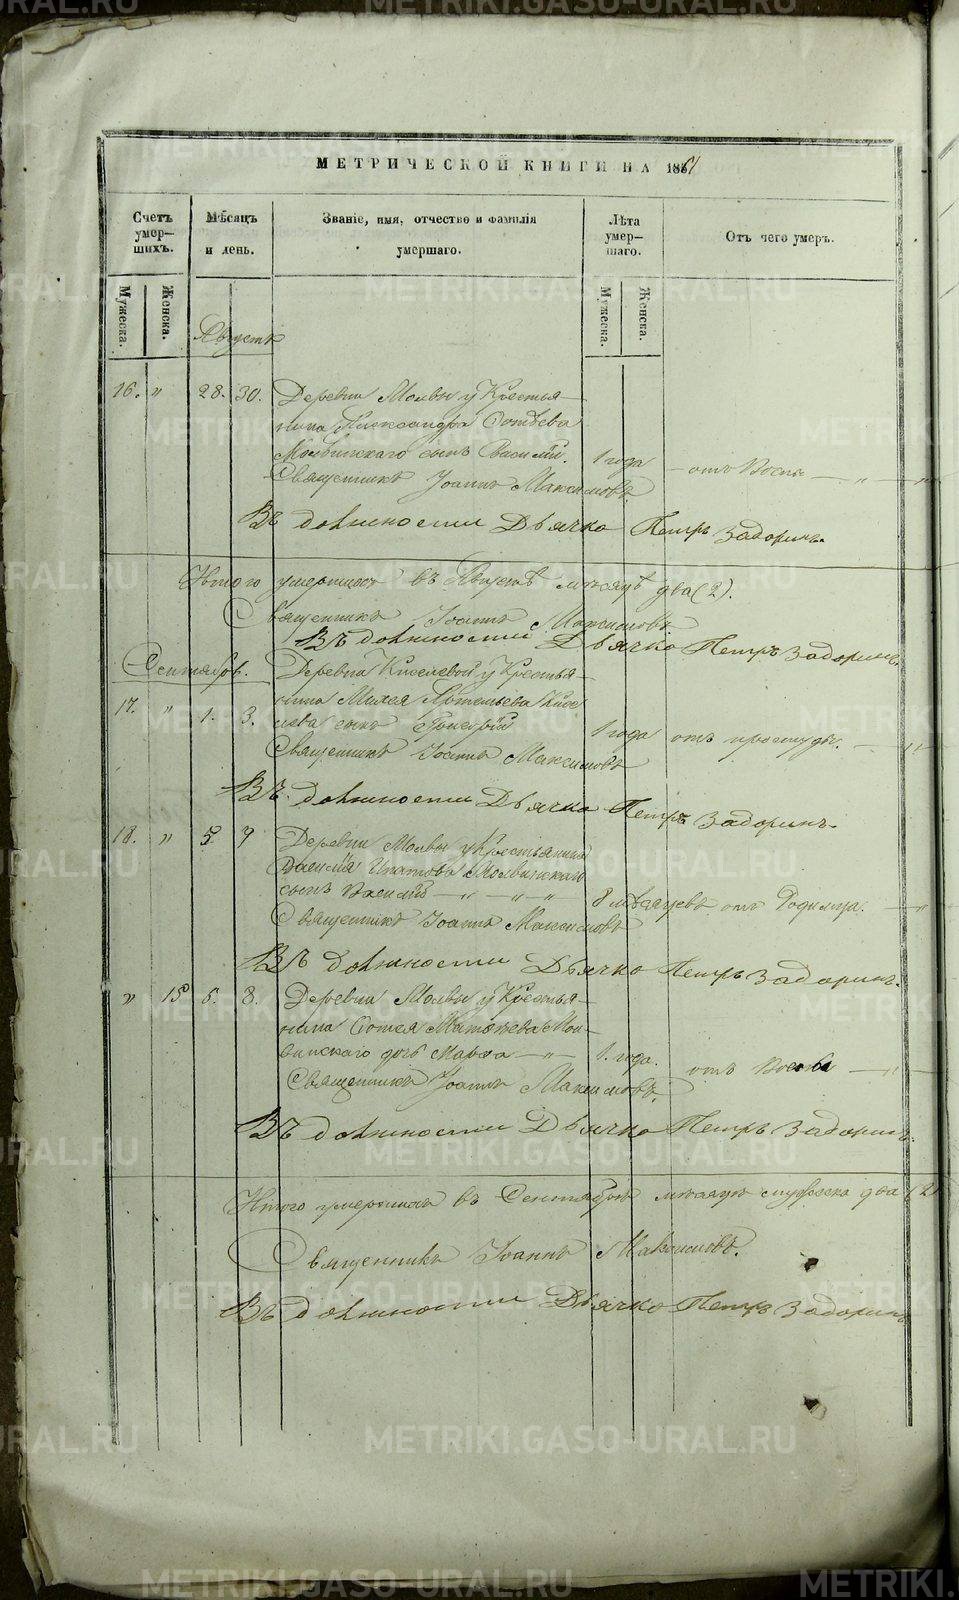 МЕТРИЧЕСКОЙ КНИГИ НА 1861
Счетъ умер-шихъ.
Мѣсяцъ и день.
Званіе, имя, отчество и фамилія умершаго.
Лѣта умер-шаго.
Отъ чего умеръ.
Мужеска.
Женска.
Мужеска.
Женска.
Августъ
16. " 28. 30. Деревни Молвы у Крестья-
нина Александра
Молвинскаго сынъ Василій. 1 года отъ Воспы
Священникъ Іоаннъ Максимовъ
Въ должности Дьячка Петръ Задоринъ.
Итого умершихъ въ Августѣ мѣсяцѣ два (2).
Священникъ Іоаннъ Максимовъ
Въ должности Дьячка Петръ Задоринъ.
Сентябрь. Деревни Киселевой у Крестья-
17. " 1. 3. нина Артемьева Кисе
лева сынъ Григорій 1 года отъ простуды.
Священникъ Іоаннъ Максимовъ
Въ должности Дьячка Петръ Задоринъ.
18. " 5. 7 Деревни Молвы у Крестьянина
Василія Ипатова Молвинскаго
сынъ Василій 8 мѣсяцевъ отъ Родимца.
Священникъ Іоаннъ Максимовъ
Въ должности Дьячка Петръ Задоринъ.
" 15 6. 8. Деревни Молвы у Крестья-
нина Фотея Матвѣева Мол-
винскаго дочь Марѳа 1. года. отъ Воспы
Священникъ Іоаннъ Максимовъ.
Въ должности Дьячка Петръ Задоринъ.
Итого умершихъ въ Сентябрѣ мѣсяцѣ два (2)
Священникъ Іоаннъ Максимовъ.
Въ должности Дьячка Петръ Задоринъ.
METRIKI.GASO-URAL.RU